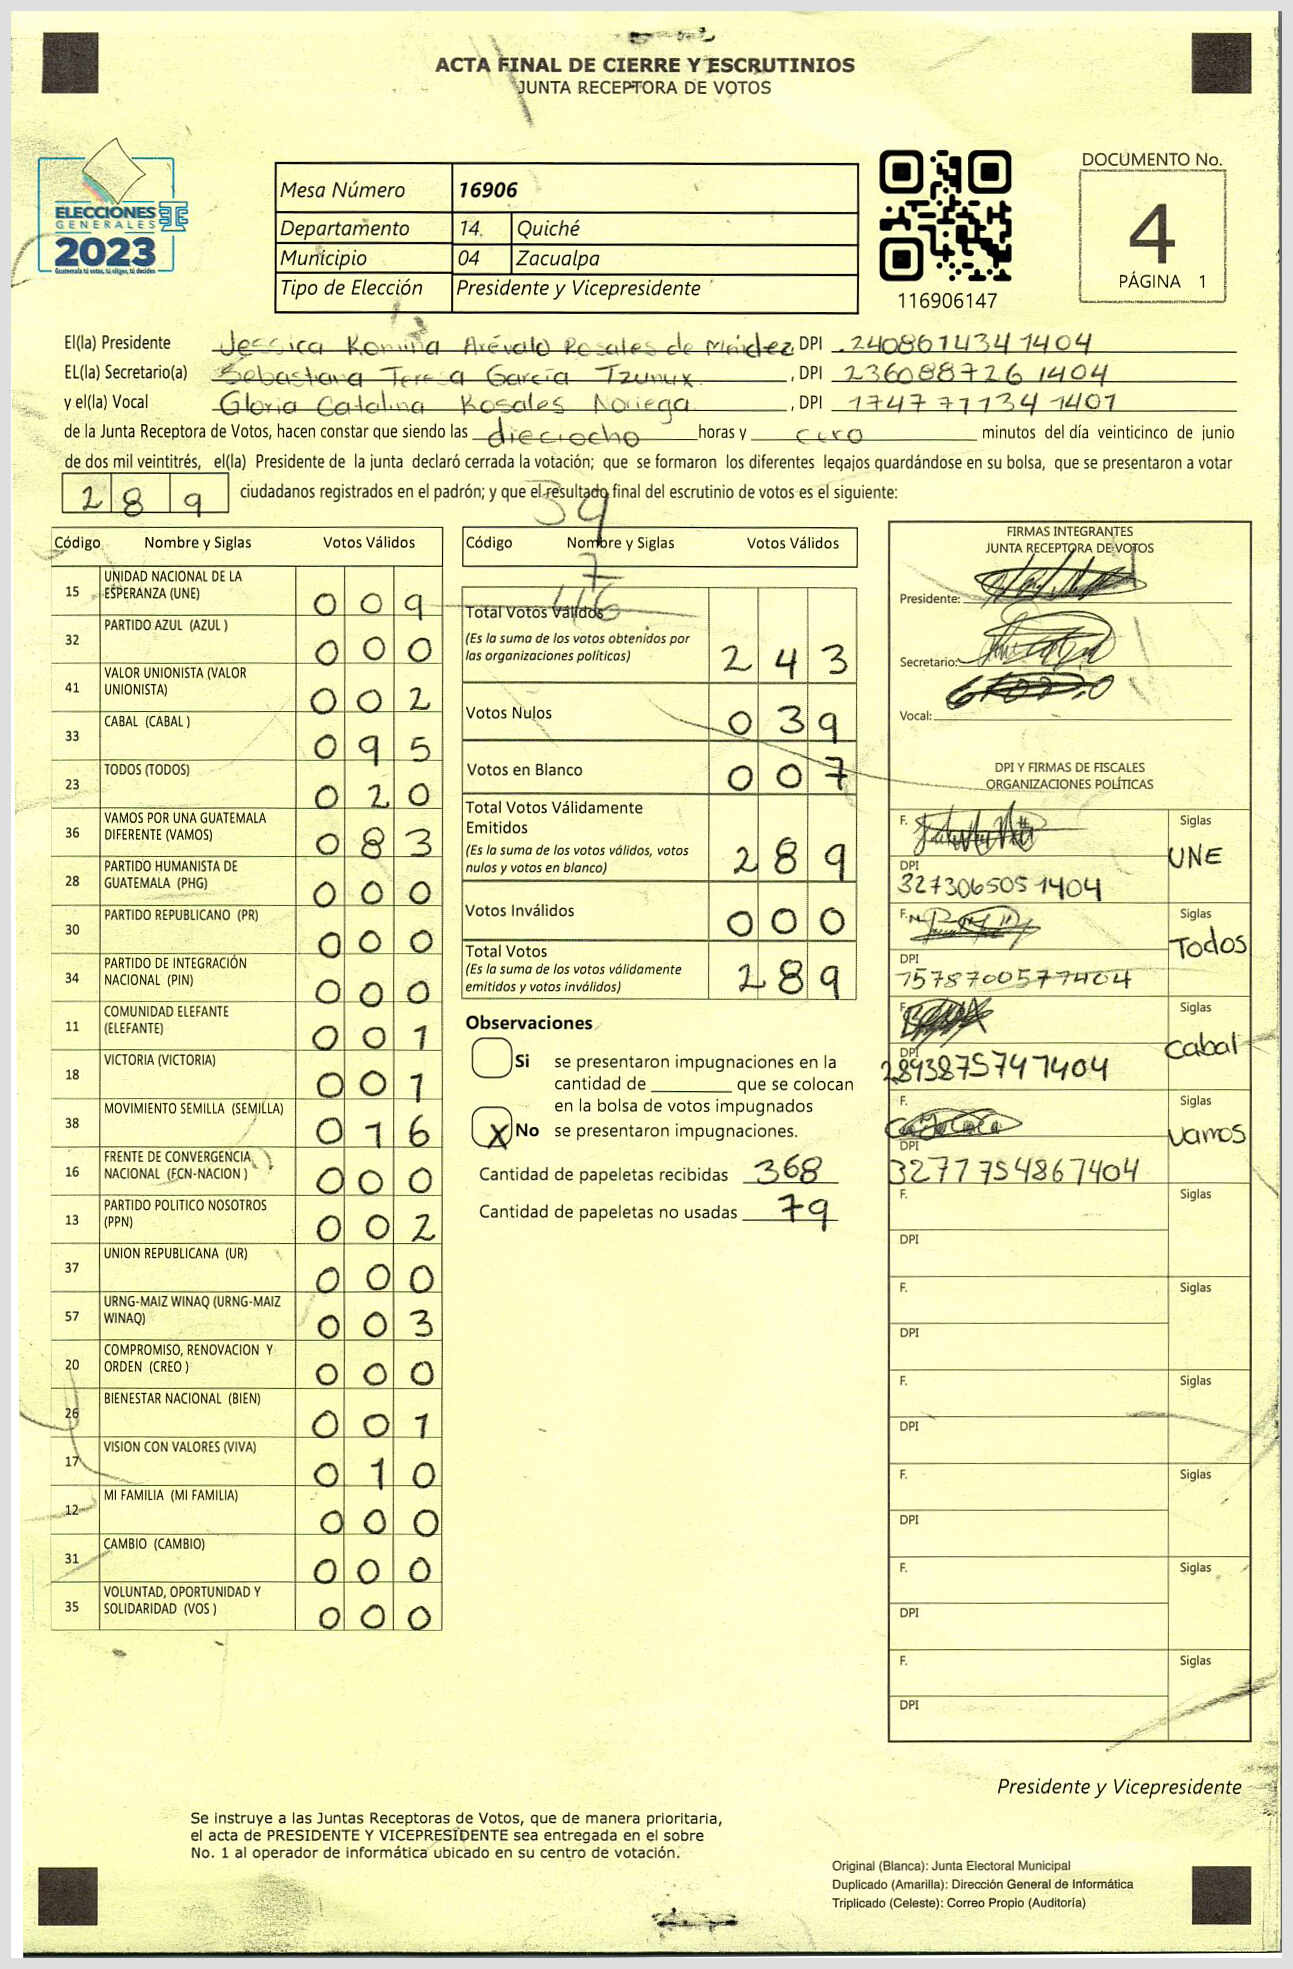 ACTA FINAL DE CIERRE Y ESCRUTINIOS
JUNTA RECEPTORA DE VOTOS
ELECCIONES
GENERALES
2023
Guatemala tú votas, tú eliges, tú decides
Mesa Número 16906
Departamento 14. Quiché
Municipio 04 Zacualpa
Tipo de Elección Presidente y Vicepresidente
116906147
DOCUMENTO No.
4
PÁGINA 1
El(la) Presidente Jessica Arévalo Rosales de Méndez DPI 2408614341404
EL(la) Secretario(a) Sebastiana Teresa García Tzunux , DPI 2360887261404
y el(la) Vocal Gloria Catalina Rosales Noriega , DPI 1747771341401
de la Junta Receptora de Votos, hacen constar que siendo las dieciocho horas y cero minutos del día veinticinco de junio
de dos mil veintitrés, el(la) Presidente de la junta declaró cerrada la votación; que se formaron los diferentes legajos guardándose en su bolsa, que se presentaron a votar
289 ciudadanos registrados en el padrón; y que el resultado final del escrutinio de votos es el siguiente:
39
7
46
Código Nombre y Siglas Votos Válidos
15 UNIDAD NACIONAL DE LA ESPERANZA (UNE) 009
32 PARTIDO AZUL (AZUL ) 000
41 VALOR UNIONISTA (VALOR UNIONISTA) 002
33 CABAL (CABAL ) 095
23 TODOS (TODOS) 020
36 VAMOS POR UNA GUATEMALA DIFERENTE (VAMOS) 083
28 PARTIDO HUMANISTA DE GUATEMALA (PHG) 000
30 PARTIDO REPUBLICANO (PR) 000
34 PARTIDO DE INTEGRACIÓN NACIONAL (PIN) 000
11 COMUNIDAD ELEFANTE (ELEFANTE) 001
18 VICTORIA (VICTORIA) 001
38 MOVIMIENTO SEMILLA (SEMILLA) 016
16 FRENTE DE CONVERGENCIA NACIONAL (FCN-NACION ) 000
13 PARTIDO POLITICO NOSOTROS (PPN) 002
37 UNION REPUBLICANA (UR) 000
57 URNG-MAIZ WINAQ (URNG-MAIZ WINAQ) 003
20 COMPROMISO, RENOVACION Y ORDEN (CREO ) 000
26 BIENESTAR NACIONAL (BIEN) 001
17 VISION CON VALORES (VIVA) 010
12 MI FAMILIA (MI FAMILIA) 000
31 CAMBIO (CAMBIO) 000
35 VOLUNTAD, OPORTUNIDAD Y SOLIDARIDAD (VOS ) 000
Código Nombre y Siglas Votos Válidos
Total Votos Válidos
(Es la suma de los votos obtenidos por
las organizaciones políticas) 243
Votos Nulos 039
Votos en Blanco 007
Total Votos Válidamente
Emitidos
(Es la suma de los votos válidos, votos
nulos y votos en blanco) 289
Votos Inválidos 000
Total Votos
(Es la suma de los votos válidamente
emitidos y votos inválidos) 289
Observaciones
Si se presentaron impugnaciones en la
cantidad de ________ que se colocan
en la bolsa de votos impugnados
X No se presentaron impugnaciones.
Cantidad de papeletas recibidas 368
Cantidad de papeletas no usadas 79
FIRMAS INTEGRANTES
JUNTA RECEPTORA DE VOTOS
Presidente:
Secretario:
Vocal:
DPI Y FIRMAS DE FISCALES
ORGANIZACIONES POLÍTICAS
F. Siglas
UNE
DPI
3273065051404
F. Siglas
Todos
DPI
1578700577404
F. Siglas
Cabal
DPI
2893875747404
F. Siglas
Vamos
DPI
3277754867404
F. Siglas
DPI
F. Siglas
DPI
F. Siglas
DPI
F. Siglas
DPI
F. Siglas
DPI
F. Siglas
DPI
Presidente y Vicepresidente
Se instruye a las Juntas Receptoras de Votos, que de manera prioritaria,
el acta de PRESIDENTE Y VICEPRESIDENTE sea entregada en el sobre
No. 1 al operador de informática ubicado en su centro de votación.
Original (Blanca): Junta Electoral Municipal
Duplicado (Amarilla): Dirección General de Informática
Triplicado (Celeste): Correo Propio (Auditoría)